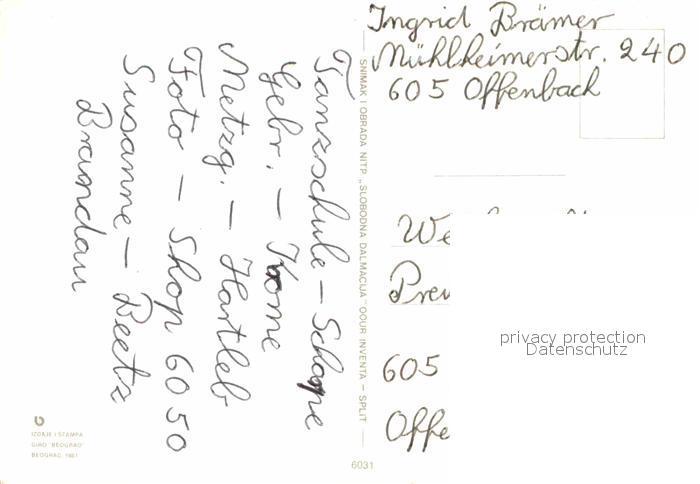 Ingrid Brämer
Mühlheimerstr. 240
605 Offenbach
We
Preu
605
Offe
privacy protection
Datenschutz
Tanzschule – Schope
Gebr. – Krome
Metzg. – Hartleb
Foto – Shop 6050
Susanne – Beetz
Bramdau
SNIMAK I OBRADA NITP „SLOBODNA DALMACIJA" OOUR INVENTA – SPLIT
6031
IZDAJE I ŠTAMPA
GIRO "BEOGRAD"
BEOGRAD, 1981